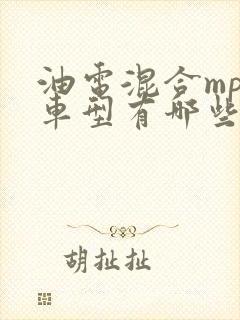 油電混合mp
車型有哪些
胡扯扯